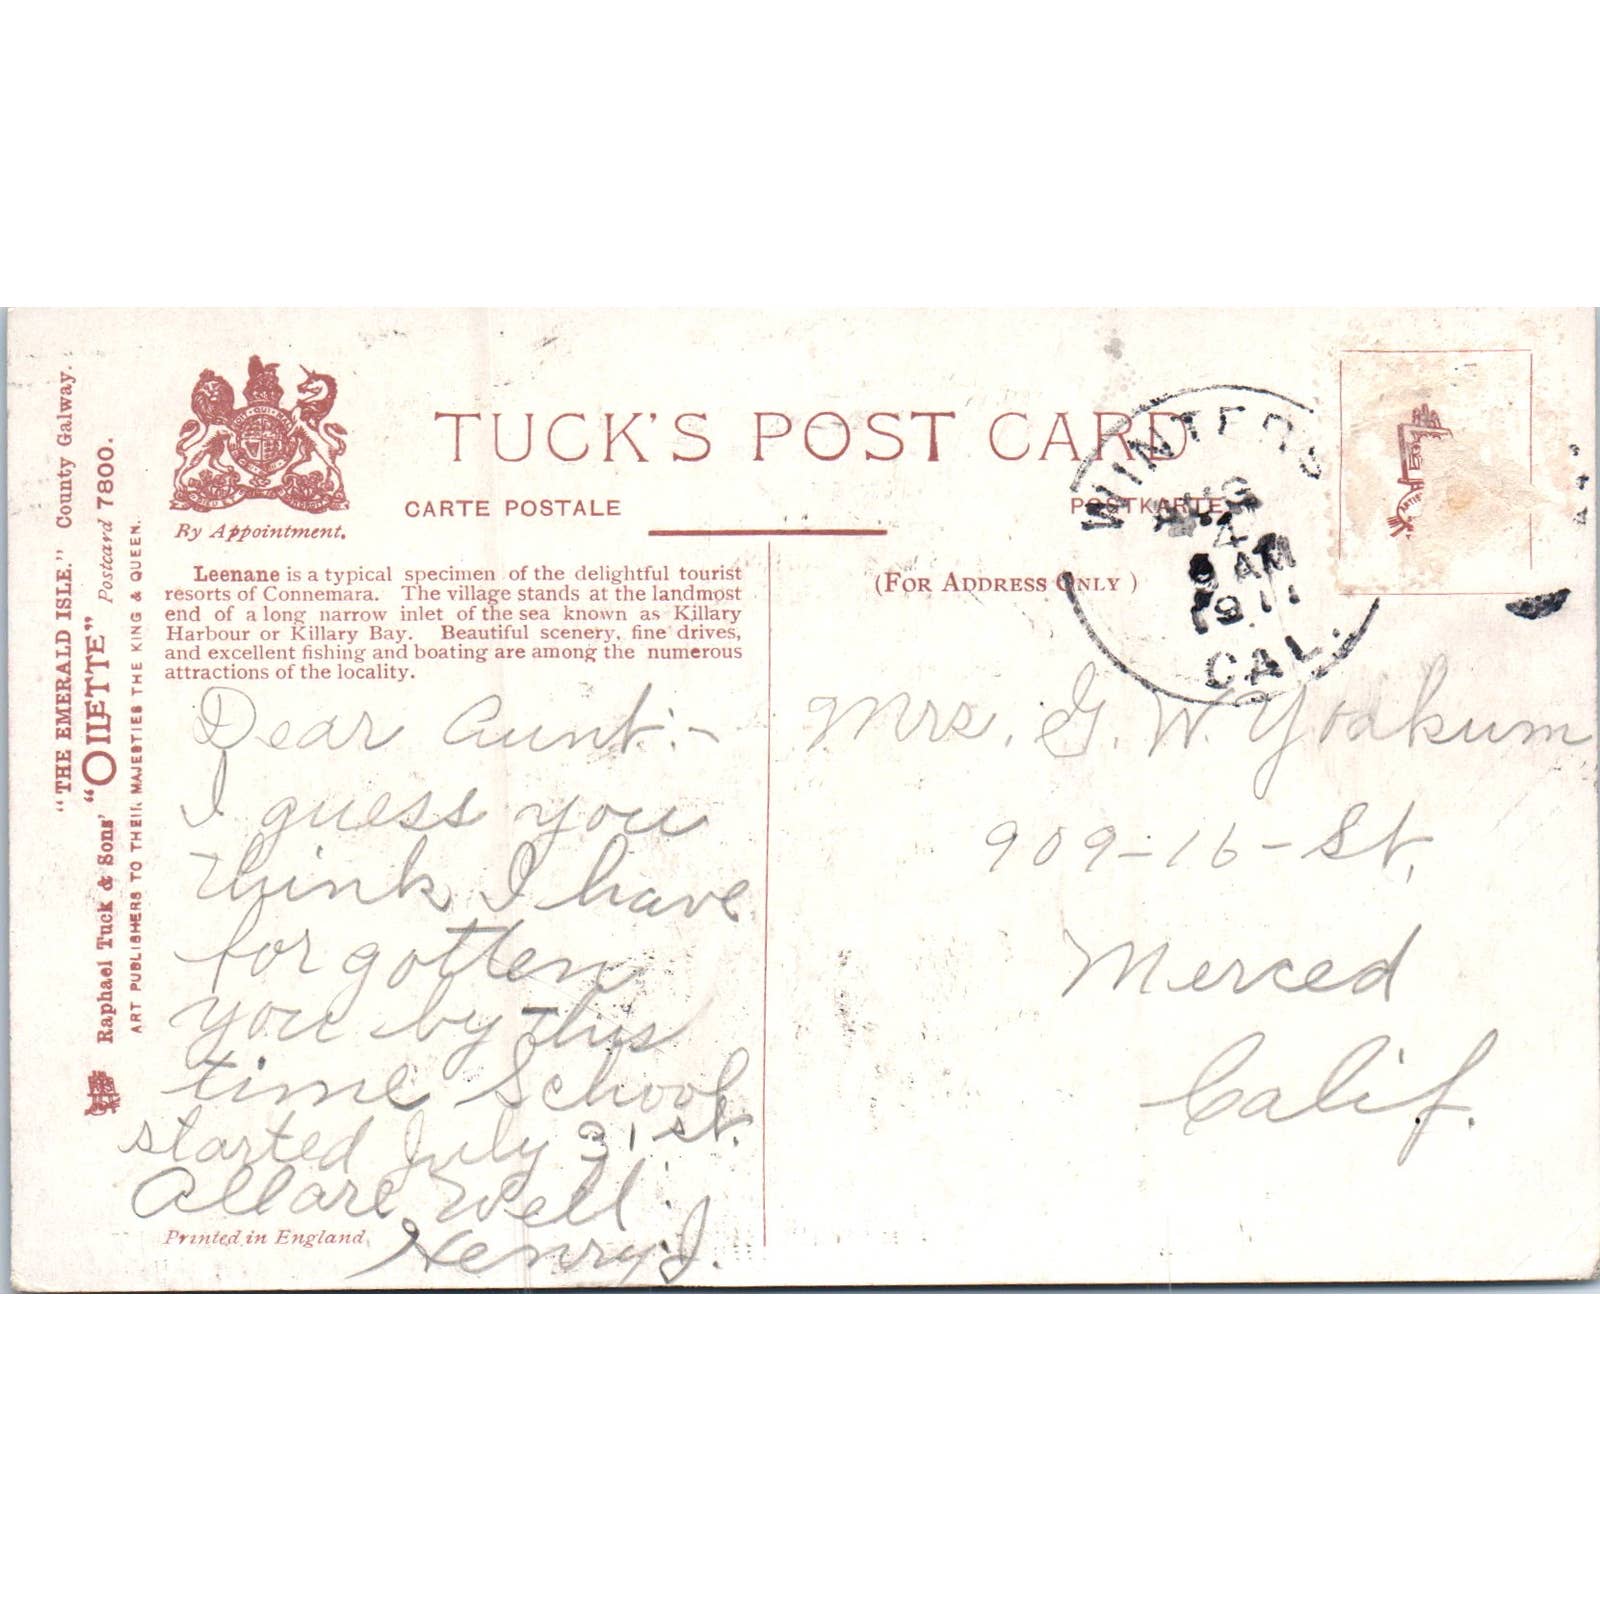 "THE EMERALD ISLE." County Galway.
Raphael Tuck & Sons' "OILETTE" Postcard 7800.
ART PUBLISHERS TO THEIR MAJESTIES THE KING & QUEEN.
By Appointment.
TUCK'S POST CARD
CARTE POSTALE
POSTKARTE
Leenane is a typical specimen of the delightful tourist
resorts of Connemara. The village stands at the landmost
end of a long narrow inlet of the sea known as Killary
Harbour or Killary Bay. Beautiful scenery, fine drives,
and excellent fishing and boating are among the numerous
attractions of the locality.
Dear Aunt:-
I guess you
think I have
forgotten
you by this
time School
started July 31st.
All are well.
Henry J.
Printed in England
(FOR ADDRESS ONLY)
WINTERS
AUG
4
AM
1911
CAL.
Mrs. G. W. Yoakum
909-16-St.
Merced
Calif.